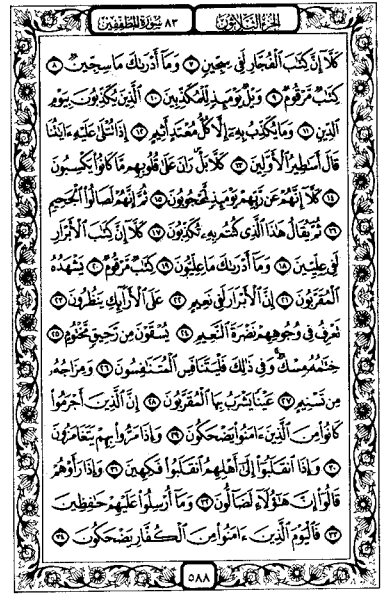 الجزء الثلاثون ٨٣ سورة المطففين
كَلَّا إِنَّ كِتَٰبَ ٱلْفُجَّارِ لَفِى سِجِّينٍ ٧ وَمَآ أَدْرَىٰكَ مَا سِجِّينٌ ٨
كِتَٰبٌ مَّرْقُومٌ ٩ وَيْلٌ يَوْمَئِذٍ لِّلْمُكَذِّبِينَ ١٠ ٱلَّذِينَ يُكَذِّبُونَ بِيَوْمِ
ٱلدِّينِ ١١ وَمَا يُكَذِّبُ بِهِۦٓ إِلَّا كُلُّ مُعْتَدٍ أَثِيمٍ ١٢ إِذَا تُتْلَىٰ عَلَيْهِ ءَايَٰتُنَا
قَالَ أَسَٰطِيرُ ٱلْأَوَّلِينَ ١٣ كَلَّا بَلْ رَانَ عَلَىٰ قُلُوبِهِم مَّا كَانُوا۟ يَكْسِبُونَ
١٤ كَلَّآ إِنَّهُمْ عَن رَّبِّهِمْ يَوْمَئِذٍ لَّمَحْجُوبُونَ ١٥ ثُمَّ إِنَّهُمْ لَصَالُوا۟ ٱلْجَحِيمِ
١٦ ثُمَّ يُقَالُ هَٰذَا ٱلَّذِى كُنتُم بِهِۦ تُكَذِّبُونَ ١٧ كَلَّآ إِنَّ كِتَٰبَ ٱلْأَبْرَارِ
لَفِى عِلِّيِّينَ ١٨ وَمَآ أَدْرَىٰكَ مَا عِلِّيُّونَ ١٩ كِتَٰبٌ مَّرْقُومٌ ٢٠ يَشْهَدُهُ
ٱلْمُقَرَّبُونَ ٢١ إِنَّ ٱلْأَبْرَارَ لَفِى نَعِيمٍ ٢٢ عَلَى ٱلْأَرَآئِكِ يَنظُرُونَ ٢٣
تَعْرِفُ فِى وُجُوهِهِمْ نَضْرَةَ ٱلنَّعِيمِ ٢٤ يُسْقَوْنَ مِن رَّحِيقٍ مَّخْتُومٍ ٢٥
خِتَٰمُهُۥ مِسْكٌ ۚ وَفِى ذَٰلِكَ فَلْيَتَنَافَسِ ٱلْمُتَنَٰفِسُونَ ٢٦ وَمِزَاجُهُۥ
مِن تَسْنِيمٍ ٢٧ عَيْنًا يَشْرَبُ بِهَا ٱلْمُقَرَّبُونَ ٢٨ إِنَّ ٱلَّذِينَ أَجْرَمُوا۟
كَانُوا۟ مِنَ ٱلَّذِينَ ءَامَنُوا۟ يَضْحَكُونَ ٢٩ وَإِذَا مَرُّوا۟ بِهِمْ يَتَغَامَزُونَ
٣٠ وَإِذَا ٱنقَلَبُوٓا۟ إِلَىٰٓ أَهْلِهِمُ ٱنقَلَبُوا۟ فَكِهِينَ ٣١ وَإِذَا رَأَوْهُمْ
قَالُوٓا۟ إِنَّ هَٰٓؤُلَآءِ لَضَآلُّونَ ٣٢ وَمَآ أُرْسِلُوا۟ عَلَيْهِمْ حَٰفِظِينَ
٣٣ فَٱلْيَوْمَ ٱلَّذِينَ ءَامَنُوا۟ مِنَ ٱلْكُفَّارِ يَضْحَكُونَ ٣٤
٥٨٨